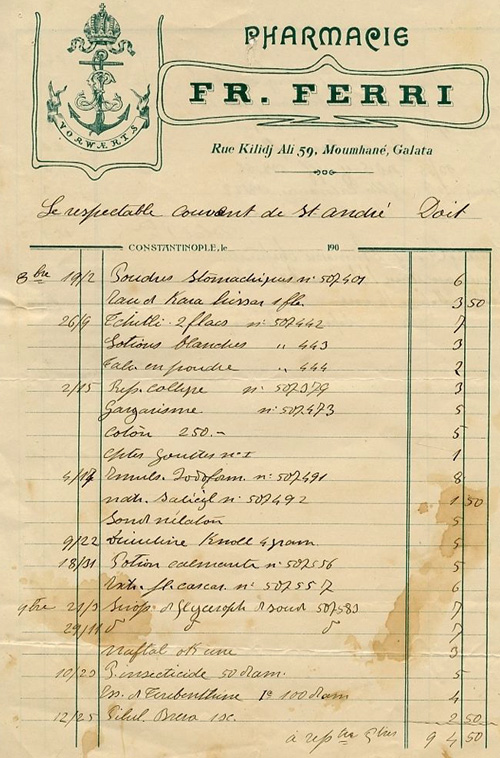 PHARMACIE
FR. FERRI
VORWÆRTS
Rue Kilidj Ali 59, Moumhané, Galata
Le respectable couvent de St andré Doit
CONSTANTINOPLE, le 190
8bre 19/2 Poudres Stomachiques n: 507401 6
1 fle. 3 50
26/9 2 flacs n: 507442 7
Lotions blanches " 443 3
en poudre " 444 2
2/15 n: 507379 3
Gargarisme n: 507473 5
Coton 250.- 5
Cptes Gouttes n: 1 1
4/17 Emuls. Iodoform. n: 507491 8
natr. Salicyl n: 507492 1 50
Sond nélaton 5
9/22 Knoll 4 gram 5
18/31 Potion calmante n: 507556 5
Extr. fl. cascar. n: 507557 6
9bre 21/3 Sirop. d Glyceroph d soud 507583 7
29/11 d° d° 7
Naftol 3
10/23 P. insecticide 50 dram. 5
Ess. d Terebenthine 100 dram 4
12/25 Pilul. 2 50
à 94 50